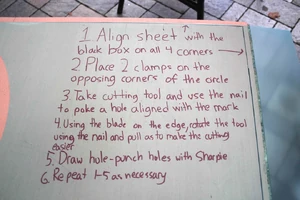 1. Align sheet with the
blade box on all 4 corners →
2. Place 2 clamps on the
opposing corners of the circle
3. Take cutting tool and use the nail
to poke a hole aligned with the mark
4. Using the blade on the edge, rotate the tool
using the nail and pull as to make the cutting
easier
5. Draw hole-punch holes with Sharpie
6. Repeat 1-5 as necessary